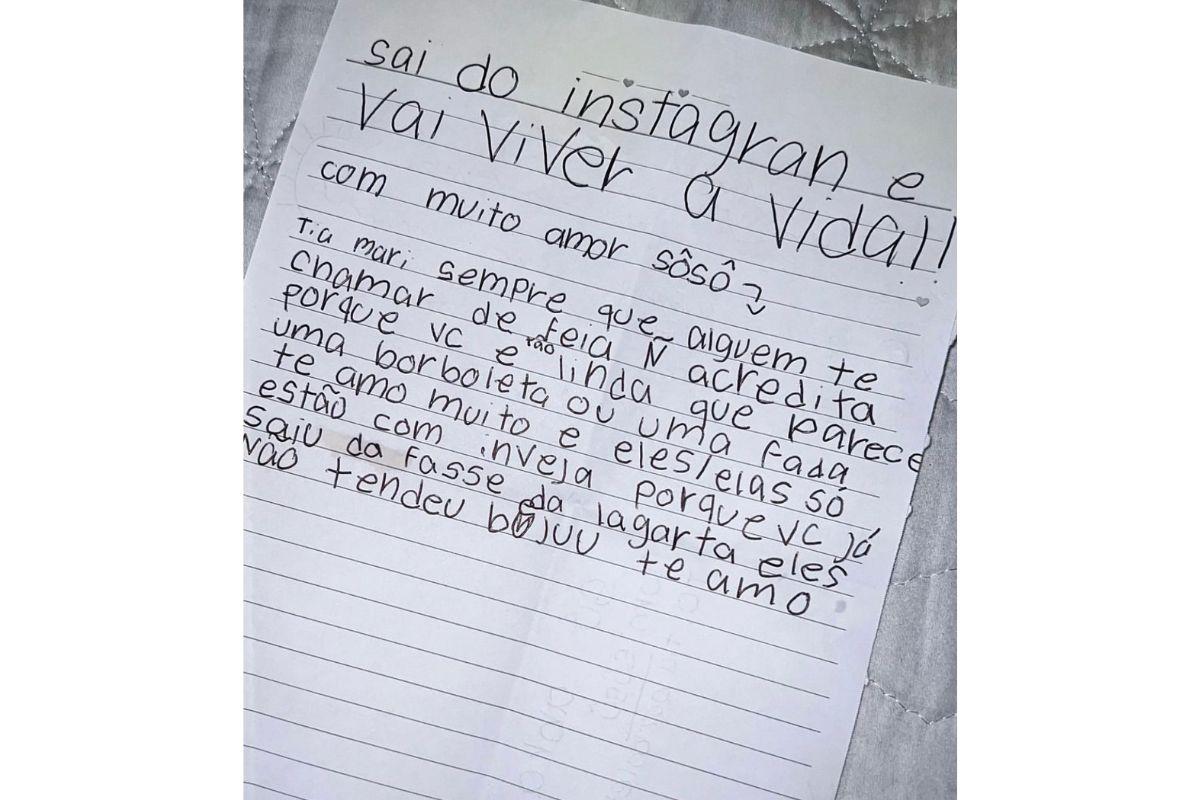 sai do instagran e
vai viver a vida!!
com muito amor sôsô
Tia mari sempre que alguem te
chamar de feia Ñ acredita
porque vc e tão linda que parece
uma borboleta ou uma fada
te amo muito e eles/elas só
estão com inveja porque vc já
saiu da fasse da lagarta eles
não tendeu bejuu te amo